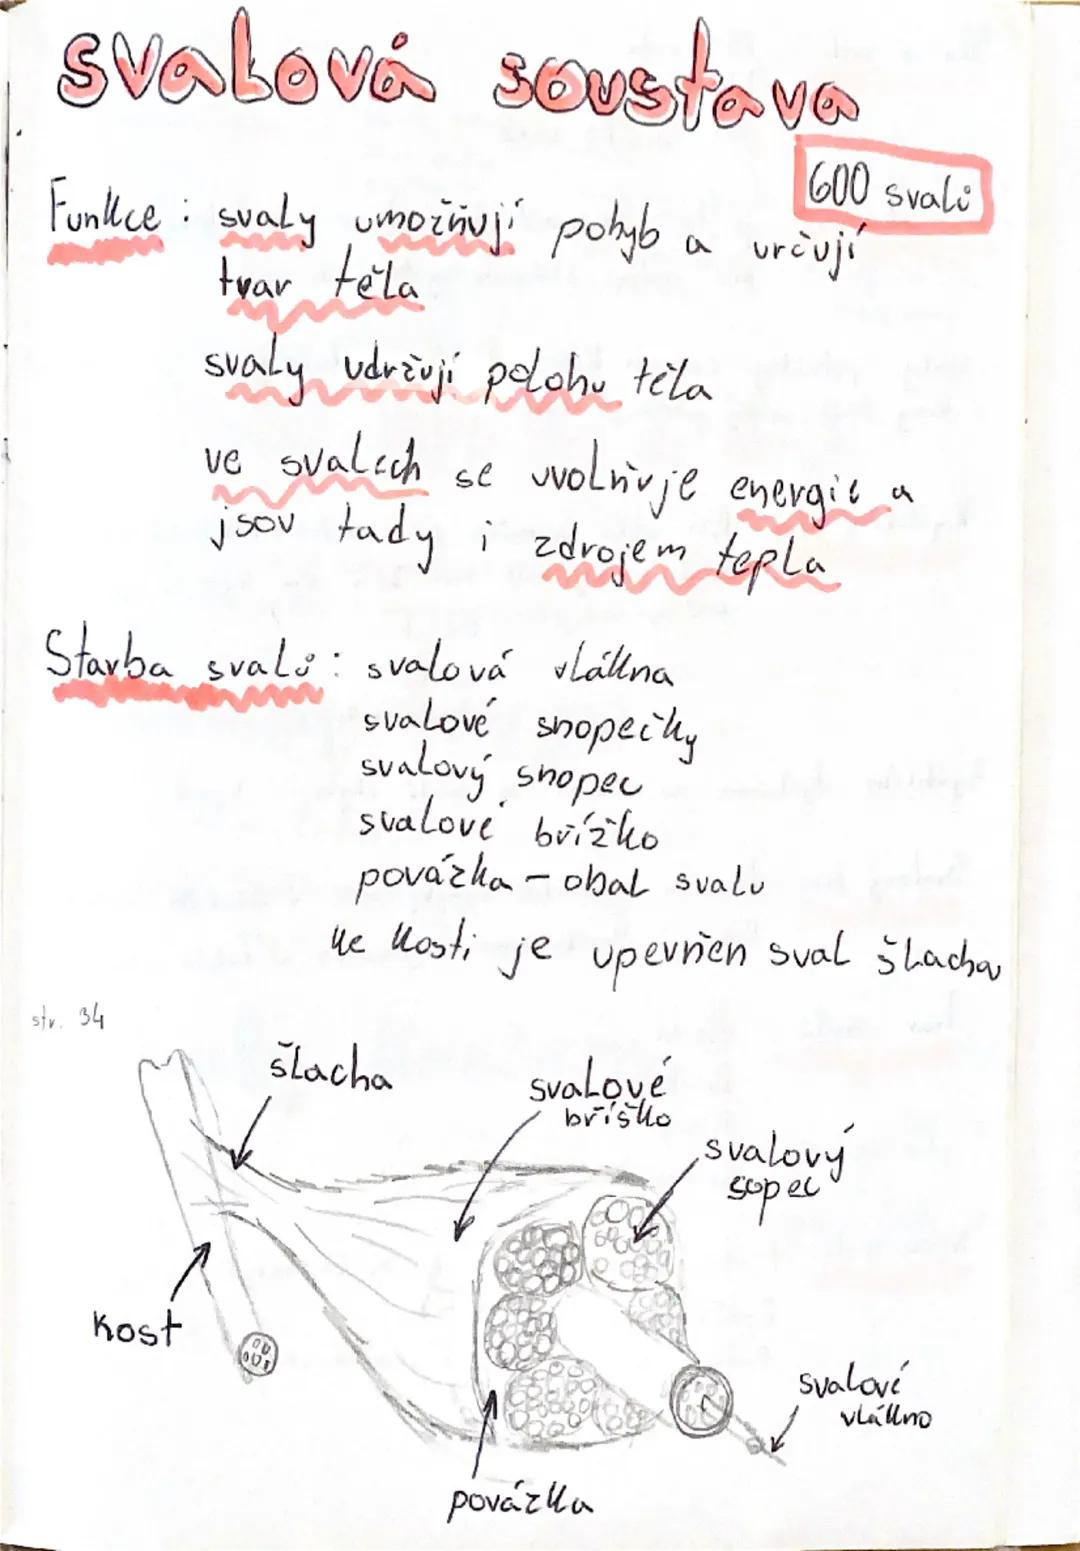 svalová soustava
600 svalů
Funkce : svaly umožňují pohyb a určují
tvar těla
svaly udržují polohu těla
ve svalech se uvolňuje energie a
jsou tady i zdrojem tepla
Stavba svalů : svalová vlákna
svalové snopečky
svalový snopec
svalové břížko
povázka – obal svalu
ke kosti je upevněn sval šlachou
str. 34
šlacha
svalové
bříško
svalový
sopec
kost
svalové
vlákno
povázka